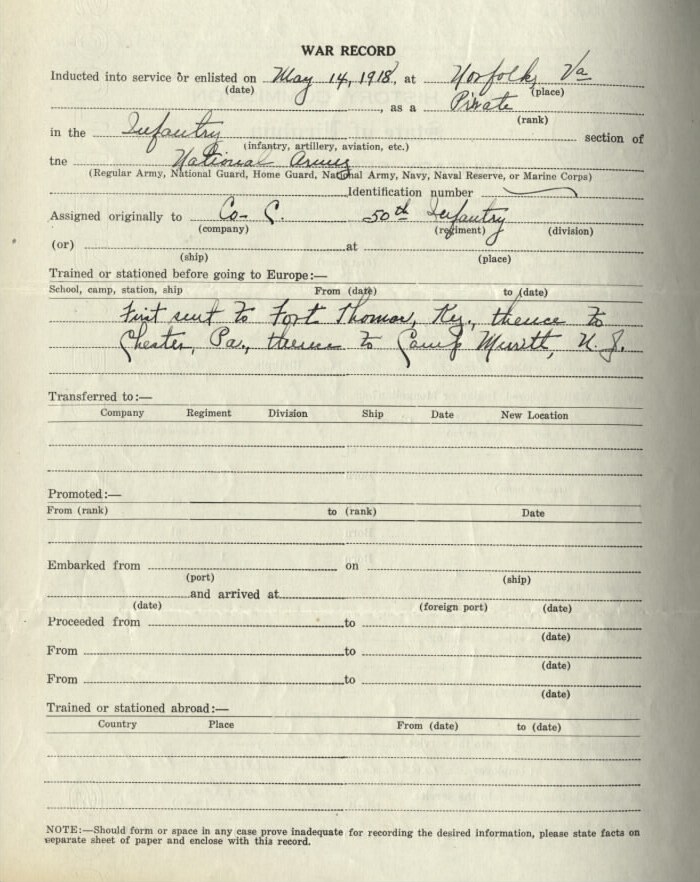 WAR RECORD
Inducted into service or enlisted on May 14, 1918, at Norfolk, Va
(date) (place)
, as a Private
(rank)
in the Infantry section of
(infantry, artillery, aviation, etc.)
tne National Army
(Regular Army, National Guard, Home Guard, National Army, Navy, Naval Reserve, or Marine Corps)
Identification number
Assigned originally to Co- C. 50th Infantry
(company) (regiment) (division)
(or) at
(ship) (place)
Trained or stationed before going to Europe:—
School, camp, station, ship From (date) to (date)
First sent to Fort Thomas, Ky., thence to
Chester, Pa., thence to Camp Merritt, N. J.
Transferred to:—
Company Regiment Division Ship Date New Location
Promoted:—
From (rank) to (rank) Date
Embarked from on
(port) (ship)
and arrived at
(date) (foreign port) (date)
Proceeded from to
(date)
From to
(date)
From to
(date)
Trained or stationed abroad:—
Country Place From (date) to (date)
NOTE:—Should form or space in any case prove inadequate for recording the desired information, please state facts on
separate sheet of paper and enclose with this record.